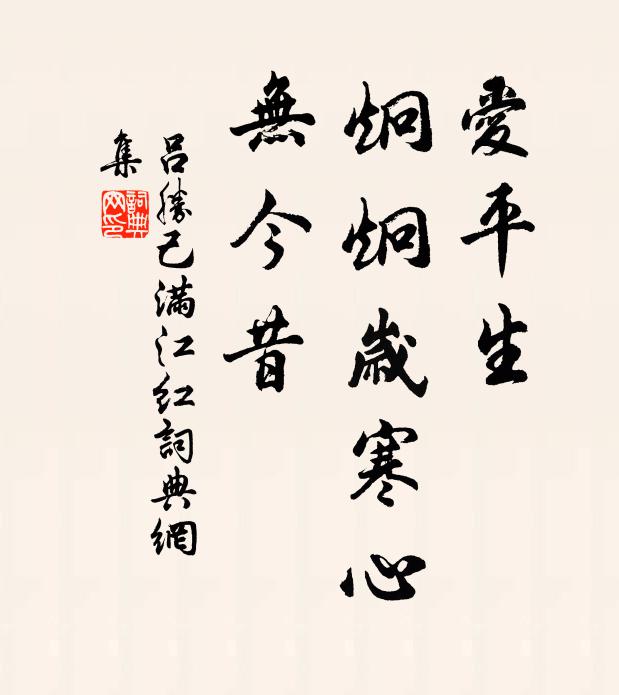 愛平生
炯炯歲寒心
無今昔
呂勝己滿江紅詞典網
集
詞典
网印